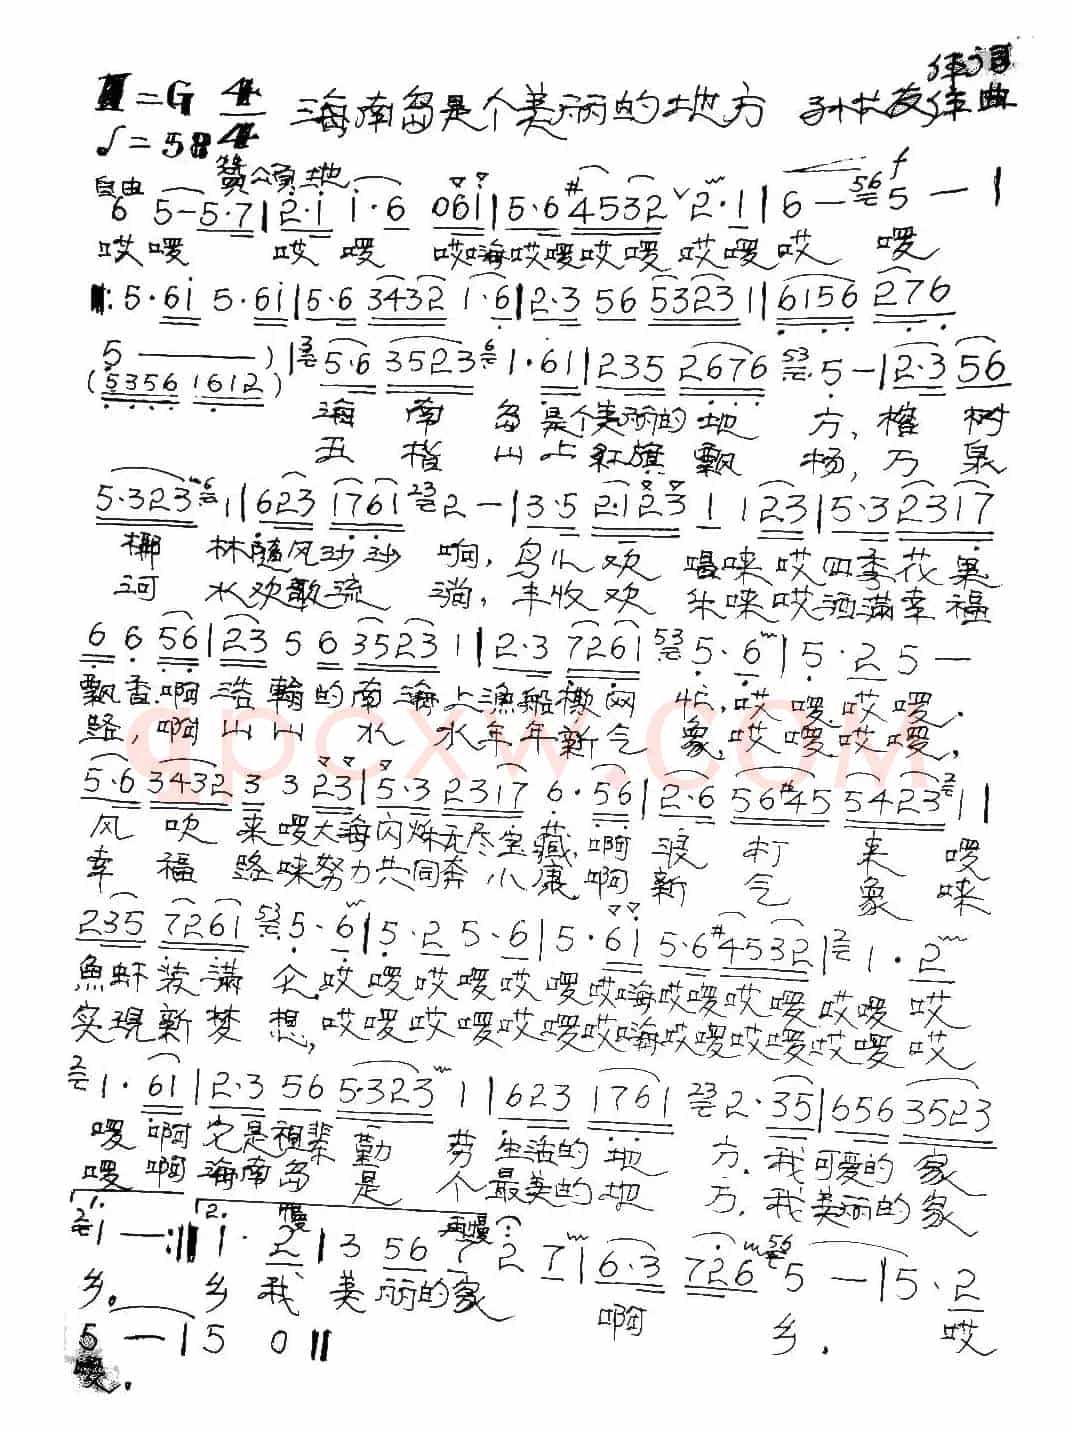 作词
=G 4/4 海南岛是个美丽的地方 孙 友 作曲
♩=58
自由 赞颂地
6 5-5·7|2·i i·6 06i|5·6 #4532 2·1|6- 56 5 - |
哎啰 哎啰 哎嗨哎啰哎啰哎啰哎 啰
‖: 5·6i 5·6i|5·6 3432 1·6|2·3 56 5323 1|6156 276
5 —— )|3 5·6 3523 6 1·61|235 2676 53 5-|2·3 56
(5356 1612)
海南岛是个美丽的地 方,榕树
五 山上红旗飘 杨,万泉
5·323 6 1|623 1761 23 2-|3·5 2·123 1 123|5·3 2317
椰 林随风沙沙 响,鸟儿欢 唱唻哎四季花果
河 水欢歌流 淌,丰收欢 乐唻哎洒满幸福
6 6 56|23 5 6 3523 1|2·3 7261 53 5·6|5·2 5-
飘香,啊浩翰的南海上渔船撒网 忙,哎啰哎啰.
路,啊山山 水 水年年新气 象,哎啰哎啰,
qpcxw.com
5·6 3432 3 3 23|5·3 2317 6·56|2·6 56#45 5423 2 1|
风吹来啰大海闪烁无尽宝藏,啊浪 打 来 啰
幸福路唻努力共同奔小康,啊新 气 象 唻
235 7261 53 5·6|5·2 5·6|5·6i 5·6#4532|2 1·2
魚虾装满 仓,哎啰哎啰哎啰哎嗨哎啰哎啰哎啰哎
实现新梦 想,哎啰哎啰哎啰哎嗨哎啰哎啰哎啰哎
2 1·61|2·3 56 5·323 1|623 1761 23 2·35|656 3523
啰啊它是祖辈勤 劳生活的地 方.我可爱的家
啰啊海南岛 是 个最美的地 方.我美丽的家
1. 2. 慢 再慢
2 1 —:‖ 1·2|3 56 7 2 7|6·3 726 56 5 —|5·2
乡。 乡我 美丽的家 啊 乡. 哎
5 —|5 0‖
啰.